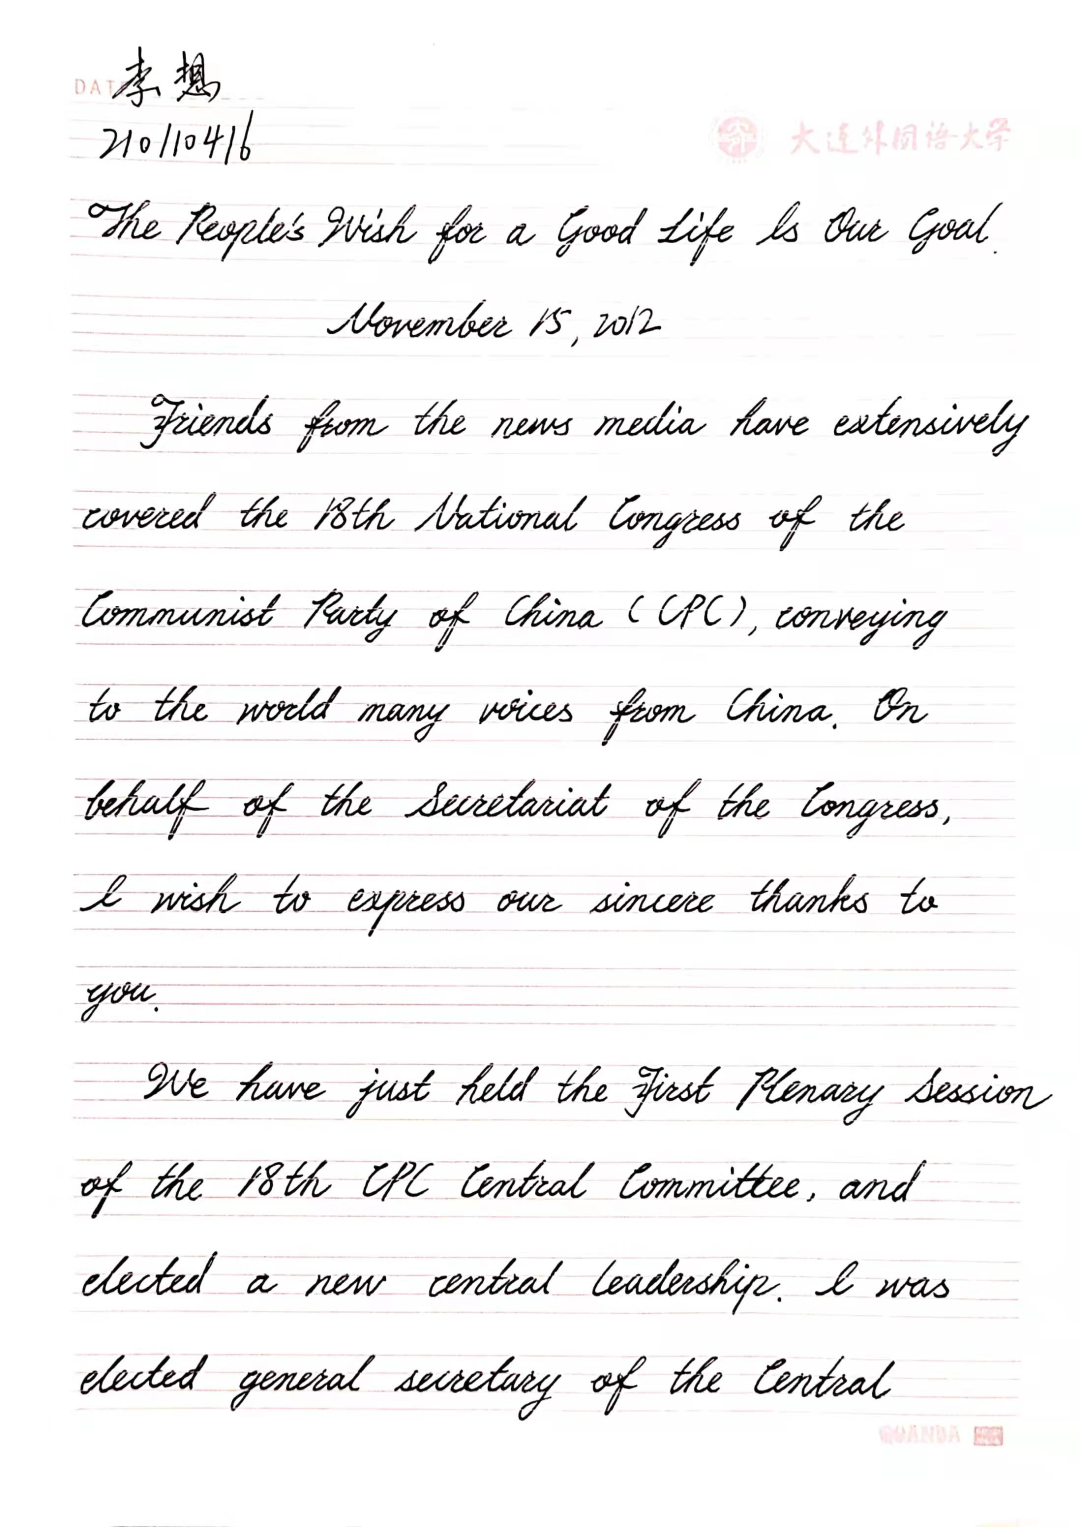 DAT
李想
210110416
大连外国语大学
The People's Wish for a Good Life Is Our Goal.
November 15, 2012
Friends from the news media have extensively
covered the 18th National Congress of the
Communist Party of China (CPC), conveying
to the world many voices from China. On
behalf of the Secretariat of the Congress,
I wish to express our sincere thanks to
you.
We have just held the First Plenary Session
of the 18th CPC Central Committee, and
elected a new central leadership. I was
elected general secretary of the Central